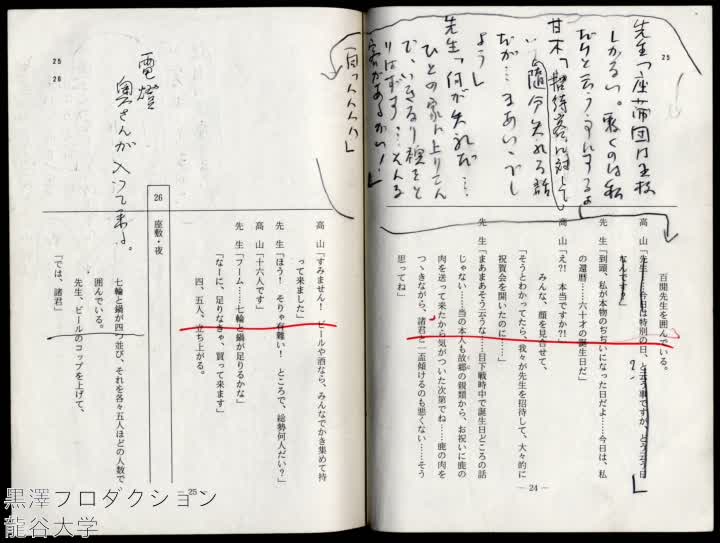 25
先生「座布団は五枚
しかない。敷くのは私
だけと云う事にするよ」
甘木「招待客に対して
先生「何が失礼だ……
ひとの家に上りこん
で、いきなり襖をと
りはずす……そんな
客があるかい！」
一同「ハハハハ」
百閒先生を囲んでいる。
高山「先生……今日は特別の日、と云う事ですが、どう云う日
なんです？」
先生「到頭、私が本物のぢぢいになった日だよ……今日は、私
の還暦……六十才の誕生日だ」
高山「え?! 本当ですか?!」
みんな、顔を見合せて、
「そうとわかってたら、我々が先生を招待して、大々的に
祝賀会を開いたのに……」
先生「まあまあそう云うな……目下戦時中で誕生日どころの話
じゃない……当の本人も故郷の親類から、お祝いに鹿の
肉を送って来たから気がついた次第でね……鹿の肉を
つゝきながら、諸君と一盃傾けるのも悪くない……そう
思ってね」
— 24 —
25
26
電燈
奥さんが入って来る。
高山「すみません！ ビールや酒なら、みんなでかき集めて持
って来ました」
先生「ほう！ そりゃ有難い！ ところで、総勢何人だい？」
高山「十六人です」
先生「フーム……七輪と鍋が足りるかな」
「なーに、足りなきゃ、買って来ます」
四、五人、立ち上がる。
26 座敷・夜
七輪と鍋が四つ並び、それを各々五人ほどの人数で、
囲んでいる。
先生、ビールのコップを上げて、
「では、諸君」
— 25 —
黒澤プロダクション
龍谷大学